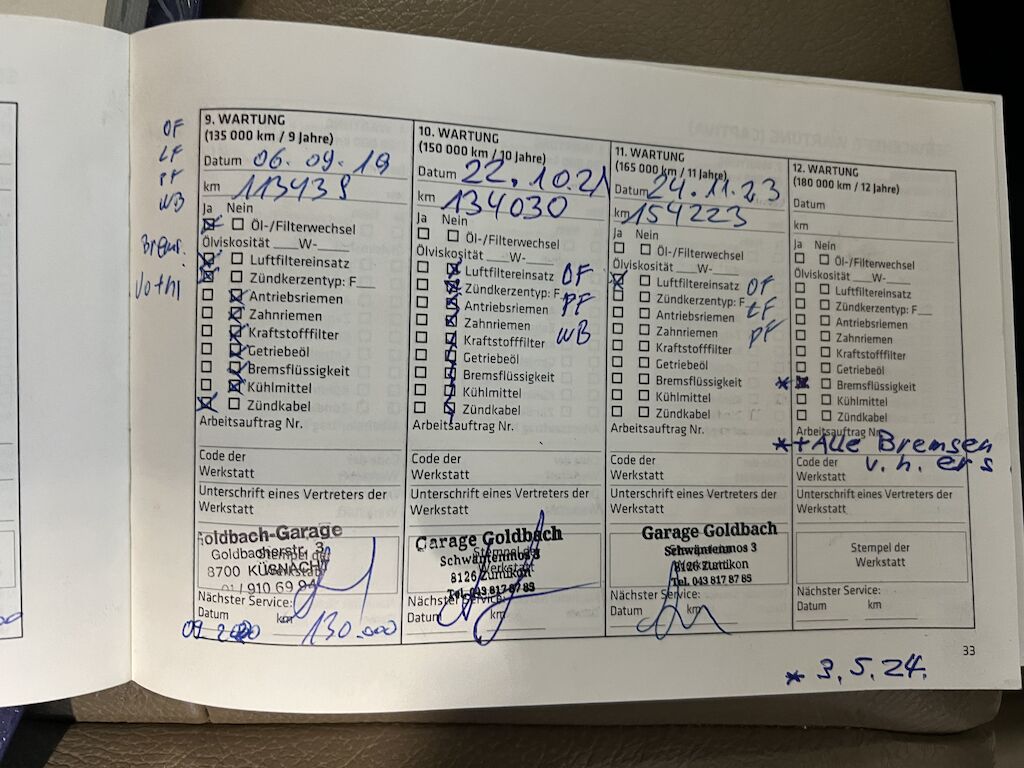 OF
LF
PF
WB
Brems.
9. WARTUNG
(135 000 km / 9 Jahre)
Datum 06. 09. 19
km 113439
Ja Nein
Öl-/Filterwechsel
Ölviskosität ___W-___
Luftfiltereinsatz
Zündkerzentyp: F__
Antriebsriemen
Zahnriemen
Kraftstofffilter
Getriebeöl
Bremsflüssigkeit
Kühlmittel
Zündkabel
Arbeitsauftrag Nr.
Code der
Werkstatt
Unterschrift eines Vertreters der
Werkstatt
Goldbach-Garage
Goldbacherstr. 3
Stempel der
8700 KÜSNACHT
Werkstatt
01 / 910 69 94
Nächster Service:
Datum km
09 130.000
10. WARTUNG
(150 000 km / 10 Jahre)
Datum 22. 10. 21
km 134030
Ja Nein
Öl-/Filterwechsel
Ölviskosität ___W-___
Luftfiltereinsatz OF
Zündkerzentyp: F
Antriebsriemen PF
Zahnriemen
Kraftstofffilter WB
Getriebeöl
Bremsflüssigkeit
Kühlmittel
Zündkabel
Arbeitsauftrag Nr.
Code der
Werkstatt
Unterschrift eines Vertreters der
Werkstatt
Garage Goldbach
Stempel der
Schwäntenmos 3
Werkstatt
8126 Zumikon
Tel. 043 817 87 85
Nächster Service:
Datum km
11. WARTUNG
(165 000 km / 11 Jahre)
Datum 24. 11. 23
km 154223
Ja Nein
Öl-/Filterwechsel
Ölviskosität ___W-___
Luftfiltereinsatz OF
Zündkerzentyp: F
Antriebsriemen LF
Zahnriemen PF
Kraftstofffilter
Getriebeöl
Bremsflüssigkeit
Kühlmittel
Zündkabel
Arbeitsauftrag Nr.
Code der
Werkstatt
Unterschrift eines Vertreters der
Werkstatt
Garage Goldbach
Schwäntenmos 3
8126 Zumikon
Tel. 043 817 87 85
Nächster Service:
Datum km
12. WARTUNG
(180 000 km / 12 Jahre)
Datum
km
Ja Nein
Öl-/Filterwechsel
Ölviskosität ___W-___
Luftfiltereinsatz
Zündkerzentyp: F__
Antriebsriemen
Zahnriemen
Kraftstofffilter
Getriebeöl
* Bremsflüssigkeit
Kühlmittel
Zündkabel
Arbeitsauftrag Nr.
*+Alle Bremsen
v. h. ers
Code der
Werkstatt
Unterschrift eines Vertreters der
Werkstatt
Stempel der
Werkstatt
Nächster Service:
Datum ___ km ___
33
* 3. 5. 24.